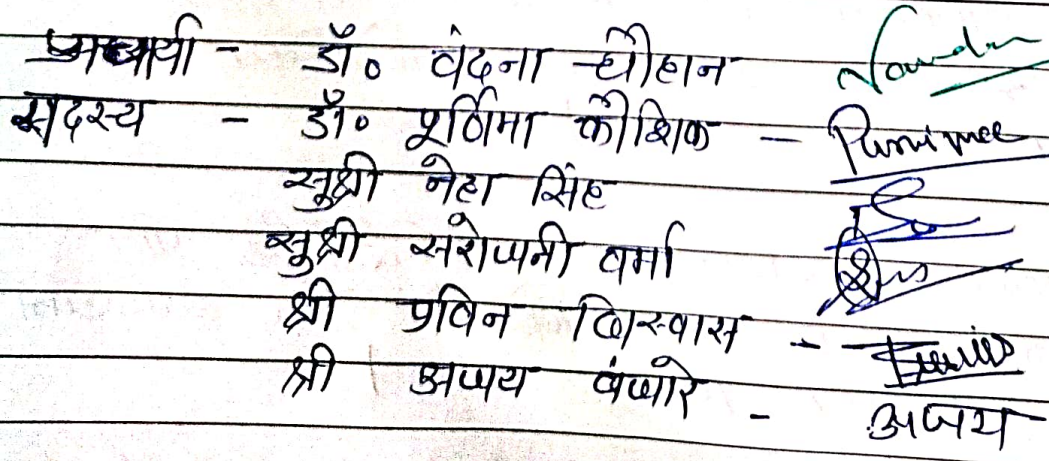 प्राचार्या - डॉ० वंदना चौहान
सदस्य - डॉ० पूर्णिमा कौशिक - Purnimee
सुश्री नेहा सिंह
सुश्री सरोजनी वर्मा
श्री प्रविन विस्वास -
श्री अजय बंजारे - अजय